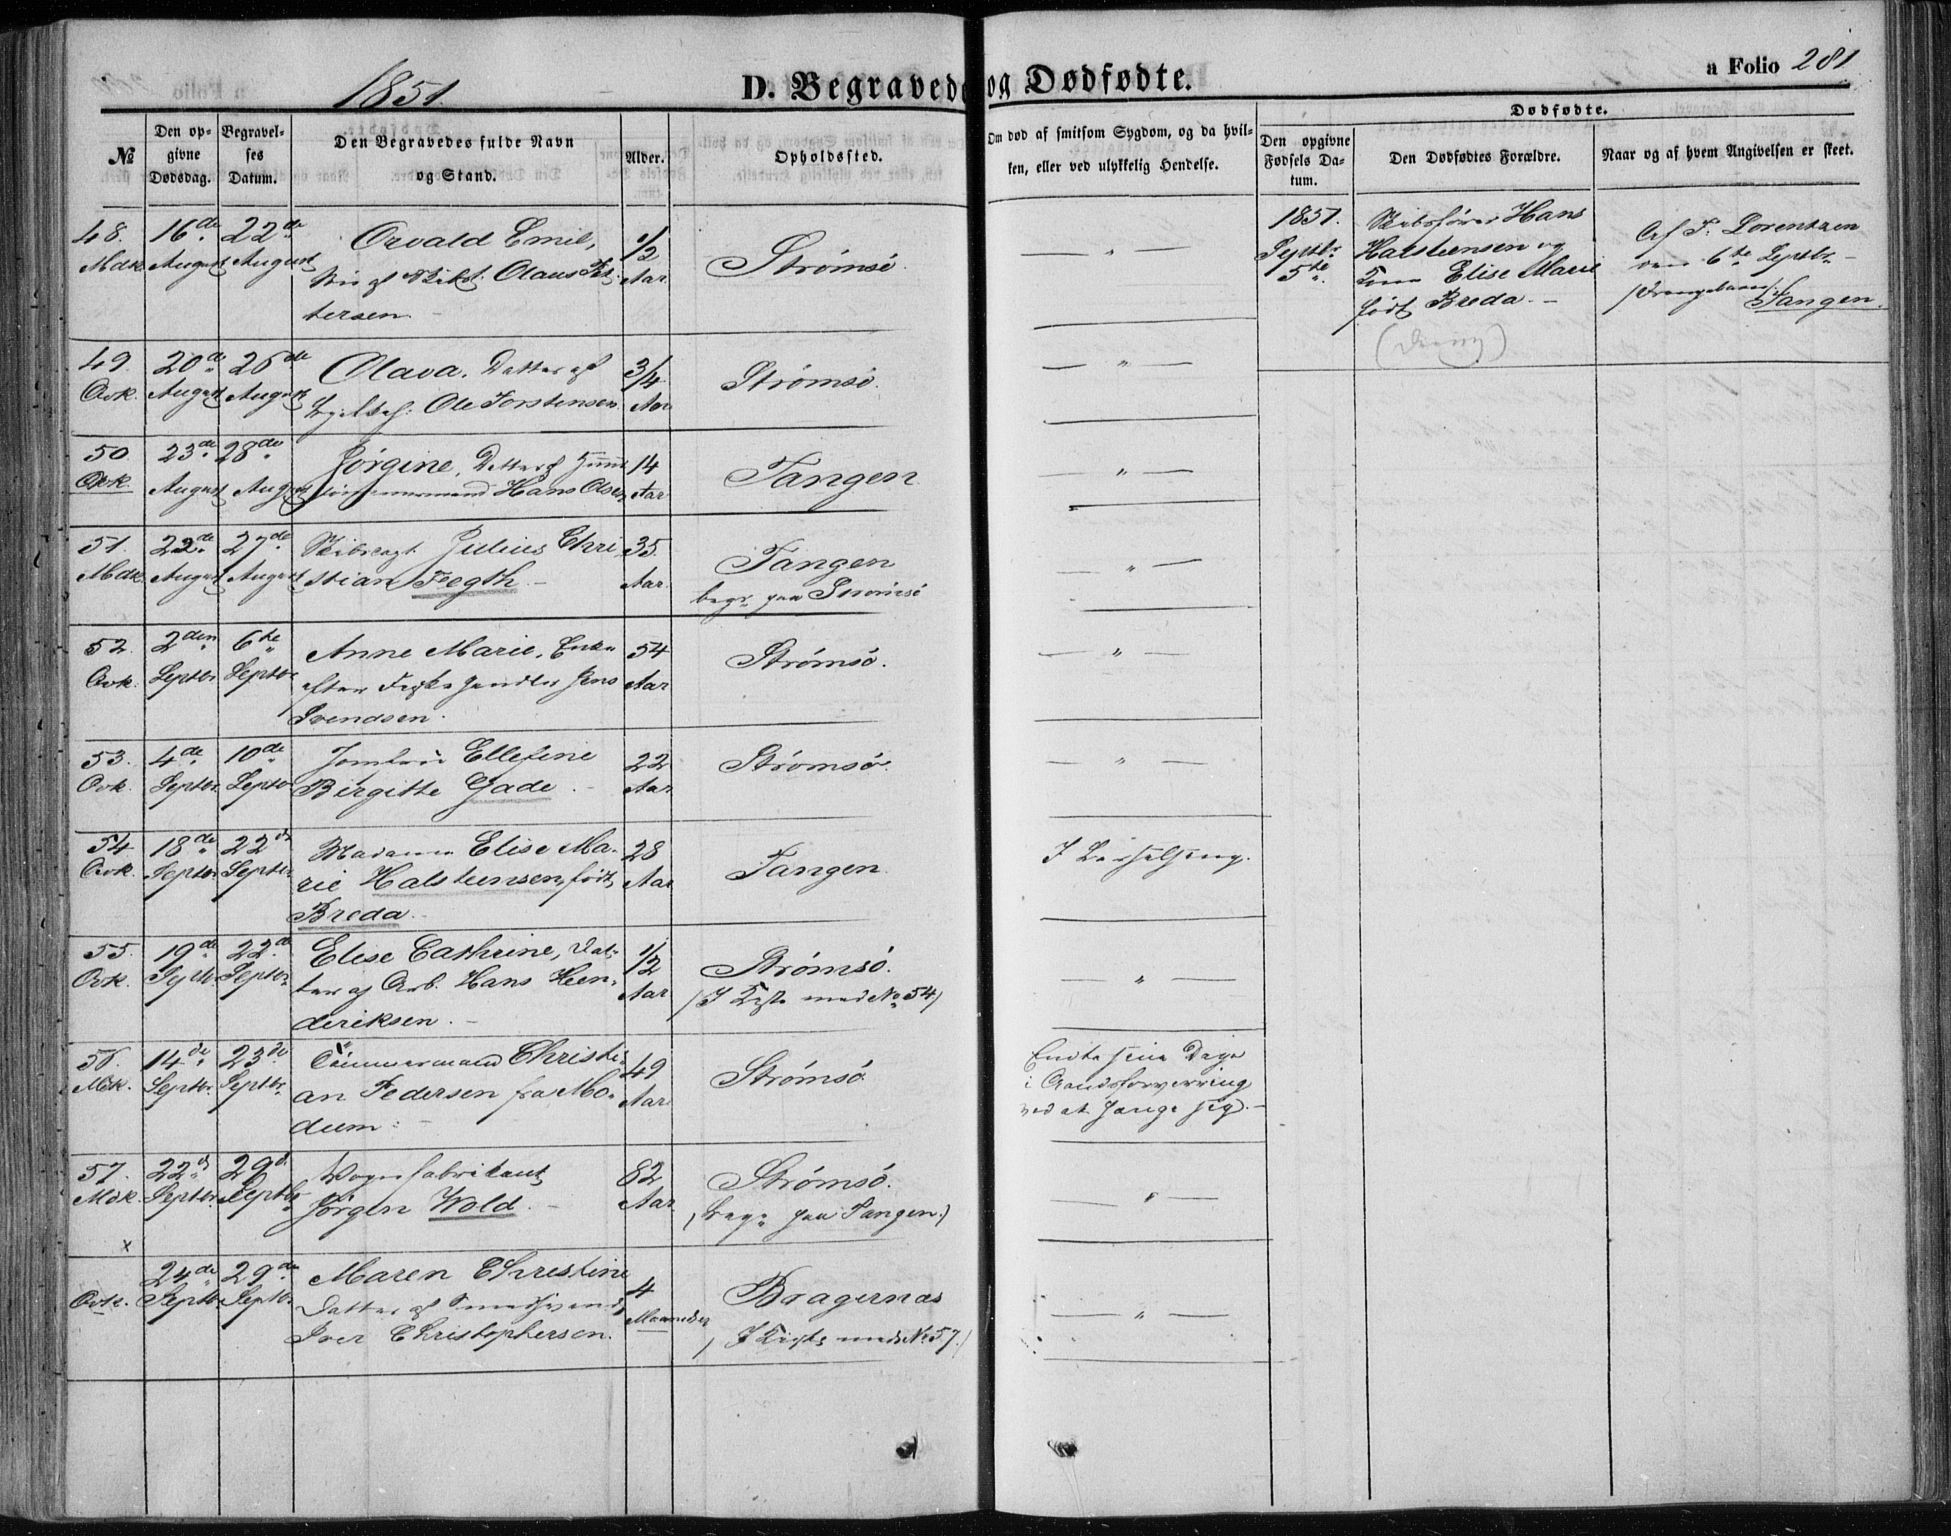 1851.
D. Begravede og Dødfødte.
a Folio 281
№
Den opgivne Dødsdag.
Begravelses Datum.
Den Begravedes fulde Navn og Stand.
Alder.
Opholdssted.
Om død af smitsom Sygdom, og da hvilken, eller ved ulykkelig Hendelse.
Dødfødte.
Den opgivne Fødsels Datum.
Den Dødfødtes Forældre.
Naar og af hvem Angivelsen er skeet.
48. 16de 22de Osvald Emil, 1/2
Mdk. August August Olaus Pet- Aar Strømsø. " —
tersen.
49. 20de 26de Olava, Datter af 3/4 Strømsø. — " —
Qvk. August August Ole Torstensen Aar
50 23de 28de Jørgine, Datter af 14 Tangen — " —
Qvk. August August Hans Olsen Aar
51. 22de 27de Julius Chri- 35 Tangen — " —
Mdk. August August stian Feegth. – Aar. begr. paa Strømsø
52. 2den 6te Anne Marie, Enke 54 Strømsø. — " —
Qvk. Septbr Septbr efter Jens Aar
Svendsen.
53. 4de 10de Jomfru Ellefine 22 Strømsø. — " —
Qvk. Septbr Septbr Birgitte Gade. Aar
54 18de 22de Madame Elise Ma- 28 Tangen. I Barselseng.
Qvk. Septbr Septbr rie Halsteensen, født Aar
Breda.
55. 19de 22de Elise Cathrine, Dat- 1/2 Strømsø. — " —
Qvk. Septbr Septbr ter af Arb. Hans Hen- Aar (I Kiste med No 54)
deriksen. –
56. 14de 23de Tømmermand Christi- 49 Strømsø Endte sine Dage
Mdk. Septbr. Septbr. an Pedersen fra Mo- Aar i
dum. – ved at hænge sig. –
57. 22de 29de Vognfabrikant 82 Strømsø. — " —
Mdk. Septbr. Septbr Jørgen Wold. – Aar (begr. paa Tangen.)
x
24de 29de Maren Christine 4 Bragernæs — " —
Qvk. Septbr Septbr Datter af Maaneder
Iver Christophersen. (I Kiste med No 57.)
1851. Septbr 5te
Skibsfører Hans
Halsteensen og
Kone Elise Marie
født Breda. –
(Dreng)
Af F. Lorentzen
den 6te Septbr. –
Tangen.